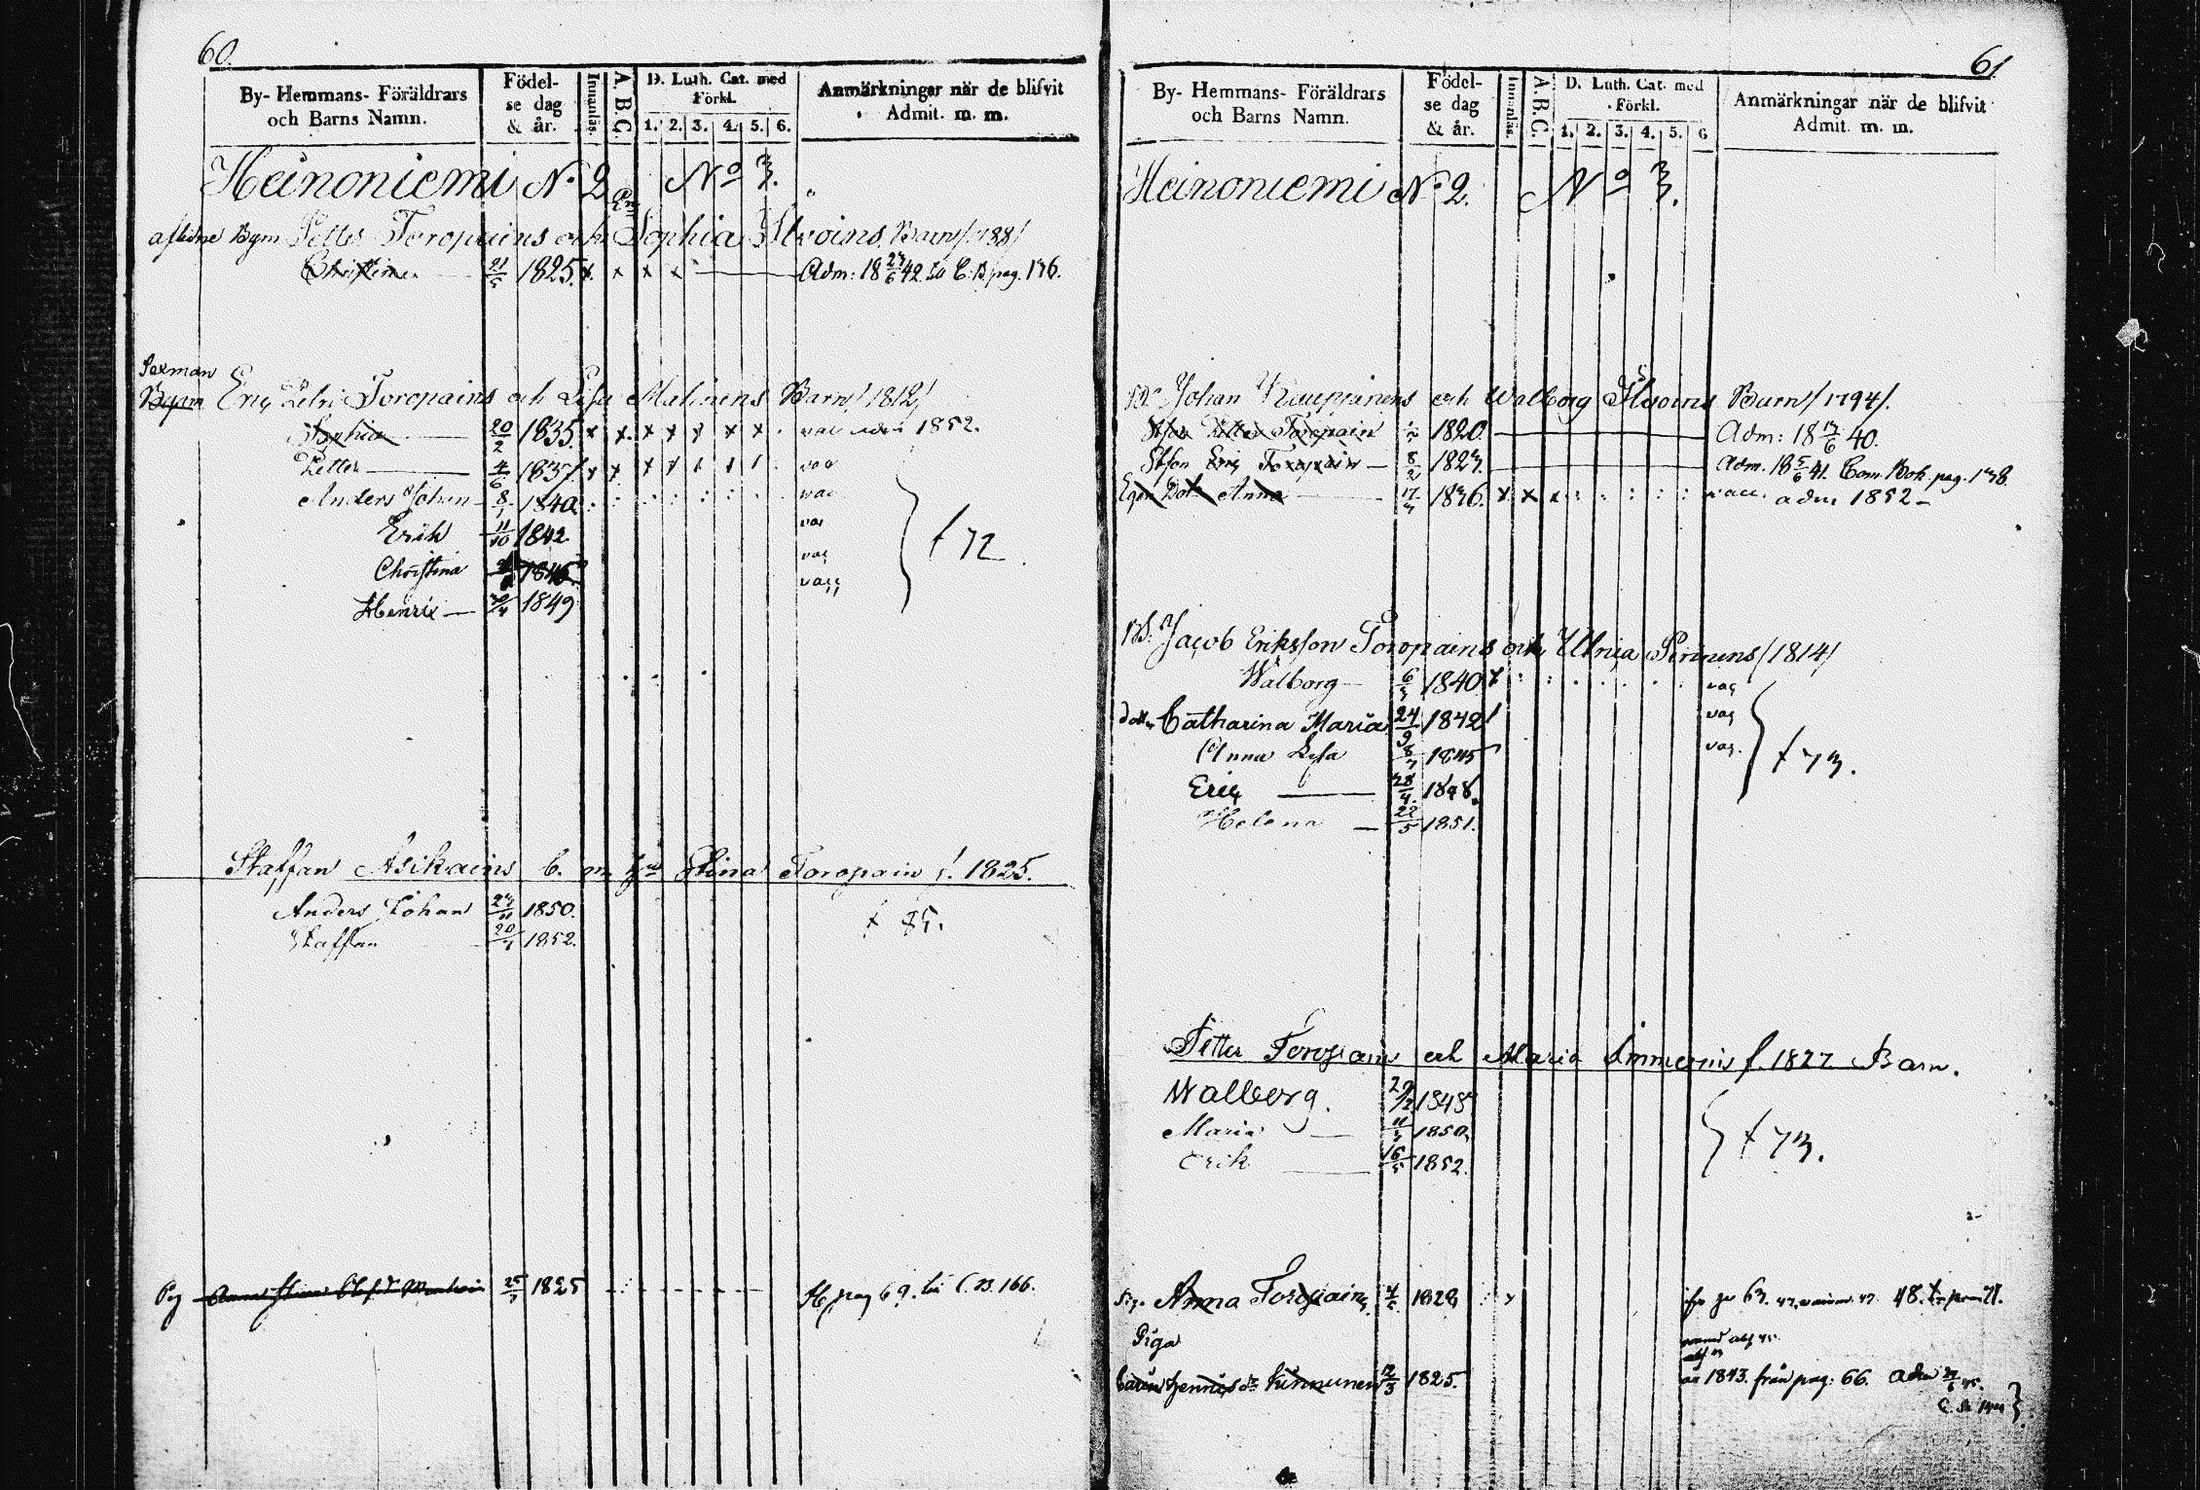 60.
By- Hemmans- Föräldrars och Barns Namn.
Födel-se dag & år.
Innanläs.
A. B. C.
D. Luth. Cat. med Förkl.
1. 2. 3. 4. 5. 6.
Anmärkningar när de blifvit Admit. m. m.
Heinoniemi No 2 No 3.
afledne Bym Petter Toropains och Sophia Ilvoins Barn /788/
Christina 21/5 1825. x x x x Adm: 18 27/6 42. C. B. pag. 136.
Sexman
Bym Eriç Petri Toropains och Lisa Malinens Barn /1812/
Sophia 20/2 1835. x x x x x x x vac adm 1852.
Petter 4/6 1837. vac
Anders Johan 8/1 1840. vac
Erik 11/10 1842 vac
Christina 1846 vac
Henric 1849 vacc
t 72
Staffan Asikains b. m. Stina Toropain f. 1825.
Anders Johan 27/11 1850.
Staffan 20/1 1852.
t 85.
Pig 25/7 1825 pag 69. C. B. 166.
61
By- Hemmans- Föräldrars och Barns Namn.
Födel-se dag & år.
Innanläs.
A. B. C.
D. Luth. Cat. med Förkl.
1. 2. 3. 4. 5. 6
Anmärkningar när de blifvit Admit. m. m.
Heinoniemi No 2. No 3.
Johan Kauppinens och Walborg Ilvoins Barn /1794/.
Stfson Petter Toropain 1820. Adm: 18 13/6 40.
Stfson Eriç Toropain 8/2 1823. Adm. 18 5/6 41. Com. Bok pag. 138
Egen Dot. Anna 17/3 1836. x x vacc. adm 1852
Bd. Jacob Eriksson Toropains och Ulrica Pirinens /1814/
Walborg 6/3 1840 vac
dott. Catharina Maria 24/9 1842 vac
Anna Lisa 1845 vac.
Eriç 28/4 1848.
Helena 22/5 1851.
t 73.
Petter Toropains och Maria Immonens f. 1827. Barn.
Walborg. 29/12 1848
Maria 11/3 1850.
Erik 16/5 1852.
t 73.
Pig. Anna Toropain 4/5 1828 63. 48.
Piga
Kinnunen 12/3 1825. 1843. från pag: 66. adm 45.